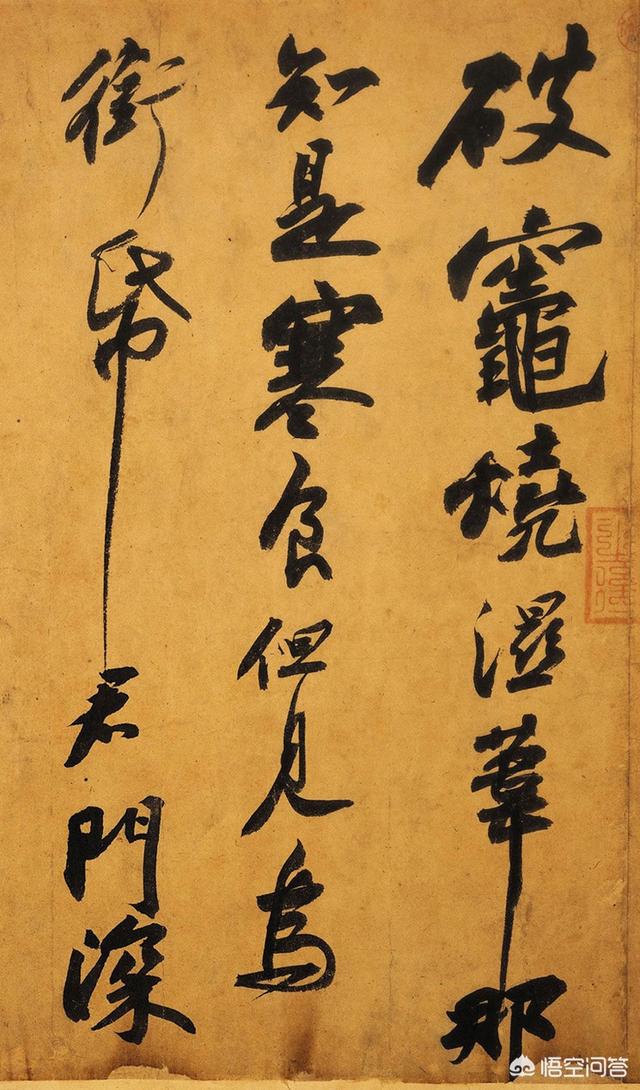 破竈燒濕葦那
知是寒食但見烏
銜帋君門深
悟空问答